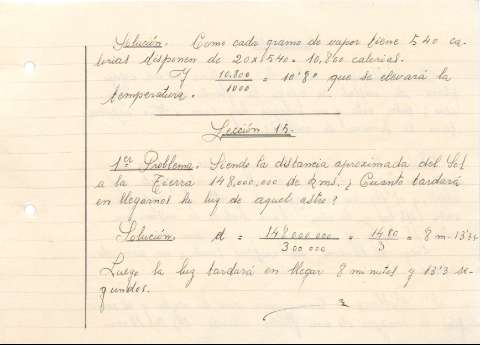 Solución. Como cada gramo de vapor tiene 540 ca-
lorias disponen de 20 x 540 = 10,800 calorias.
Y 10.800 / 1000 = 10'80 que se elevará la
temperatura.
Lección 15.
1er Problema. Siendo la distancia aproximada del Sol
a la Tierra 148,000,000 de Kms. ¿Cuanto tardará
en llegarnos la luz de aquel astro?
Solución d = 148 000 000 / 300 000 = 1480 / 3 = 8 m. 13'3
Luego la luz tardará en llegar 8 minutos y 13'3 se-
gundos.